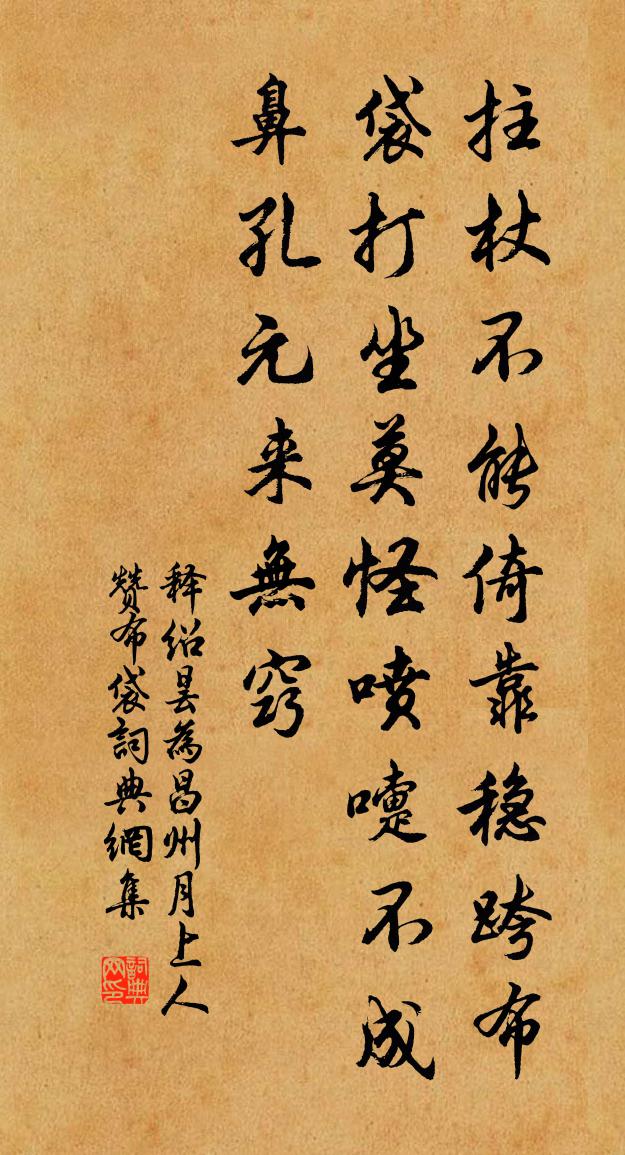 拄杖不能倚靠稳跨布
袋打坐莫怪喷嚏不成
鼻孔元来無窍
释绍昙為昌州月上人
赞布袋詞典網集
詞典网印